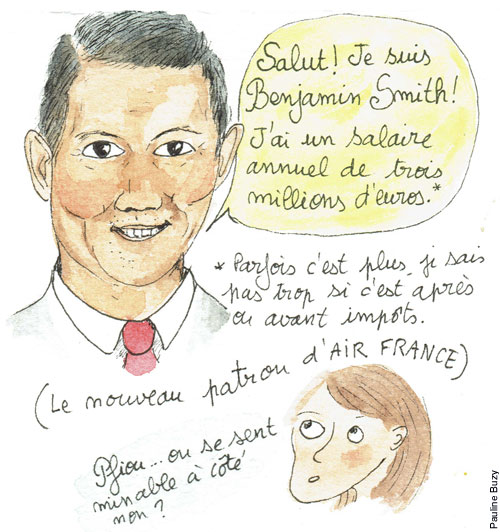 Salut! Je suis
Benjamin Smith!
J'ai un salaire
annuel de trois
millions d'euros.*
* Parfois c'est plus, je sais
pas trop si c'est après
ou avant impôts.
(Le nouveau patron d'AIR FRANCE)
Pfiou... on se sent
minable à côté
non ?
Pauline Buzy